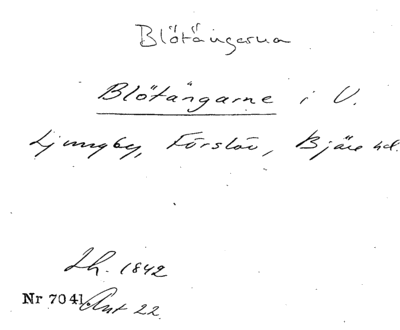 Blötängarna
Blötängarne i V.
Ljungby, Förslöv, Bjäre hd.
Lh. 1842
Nr 7041. Akt 22.